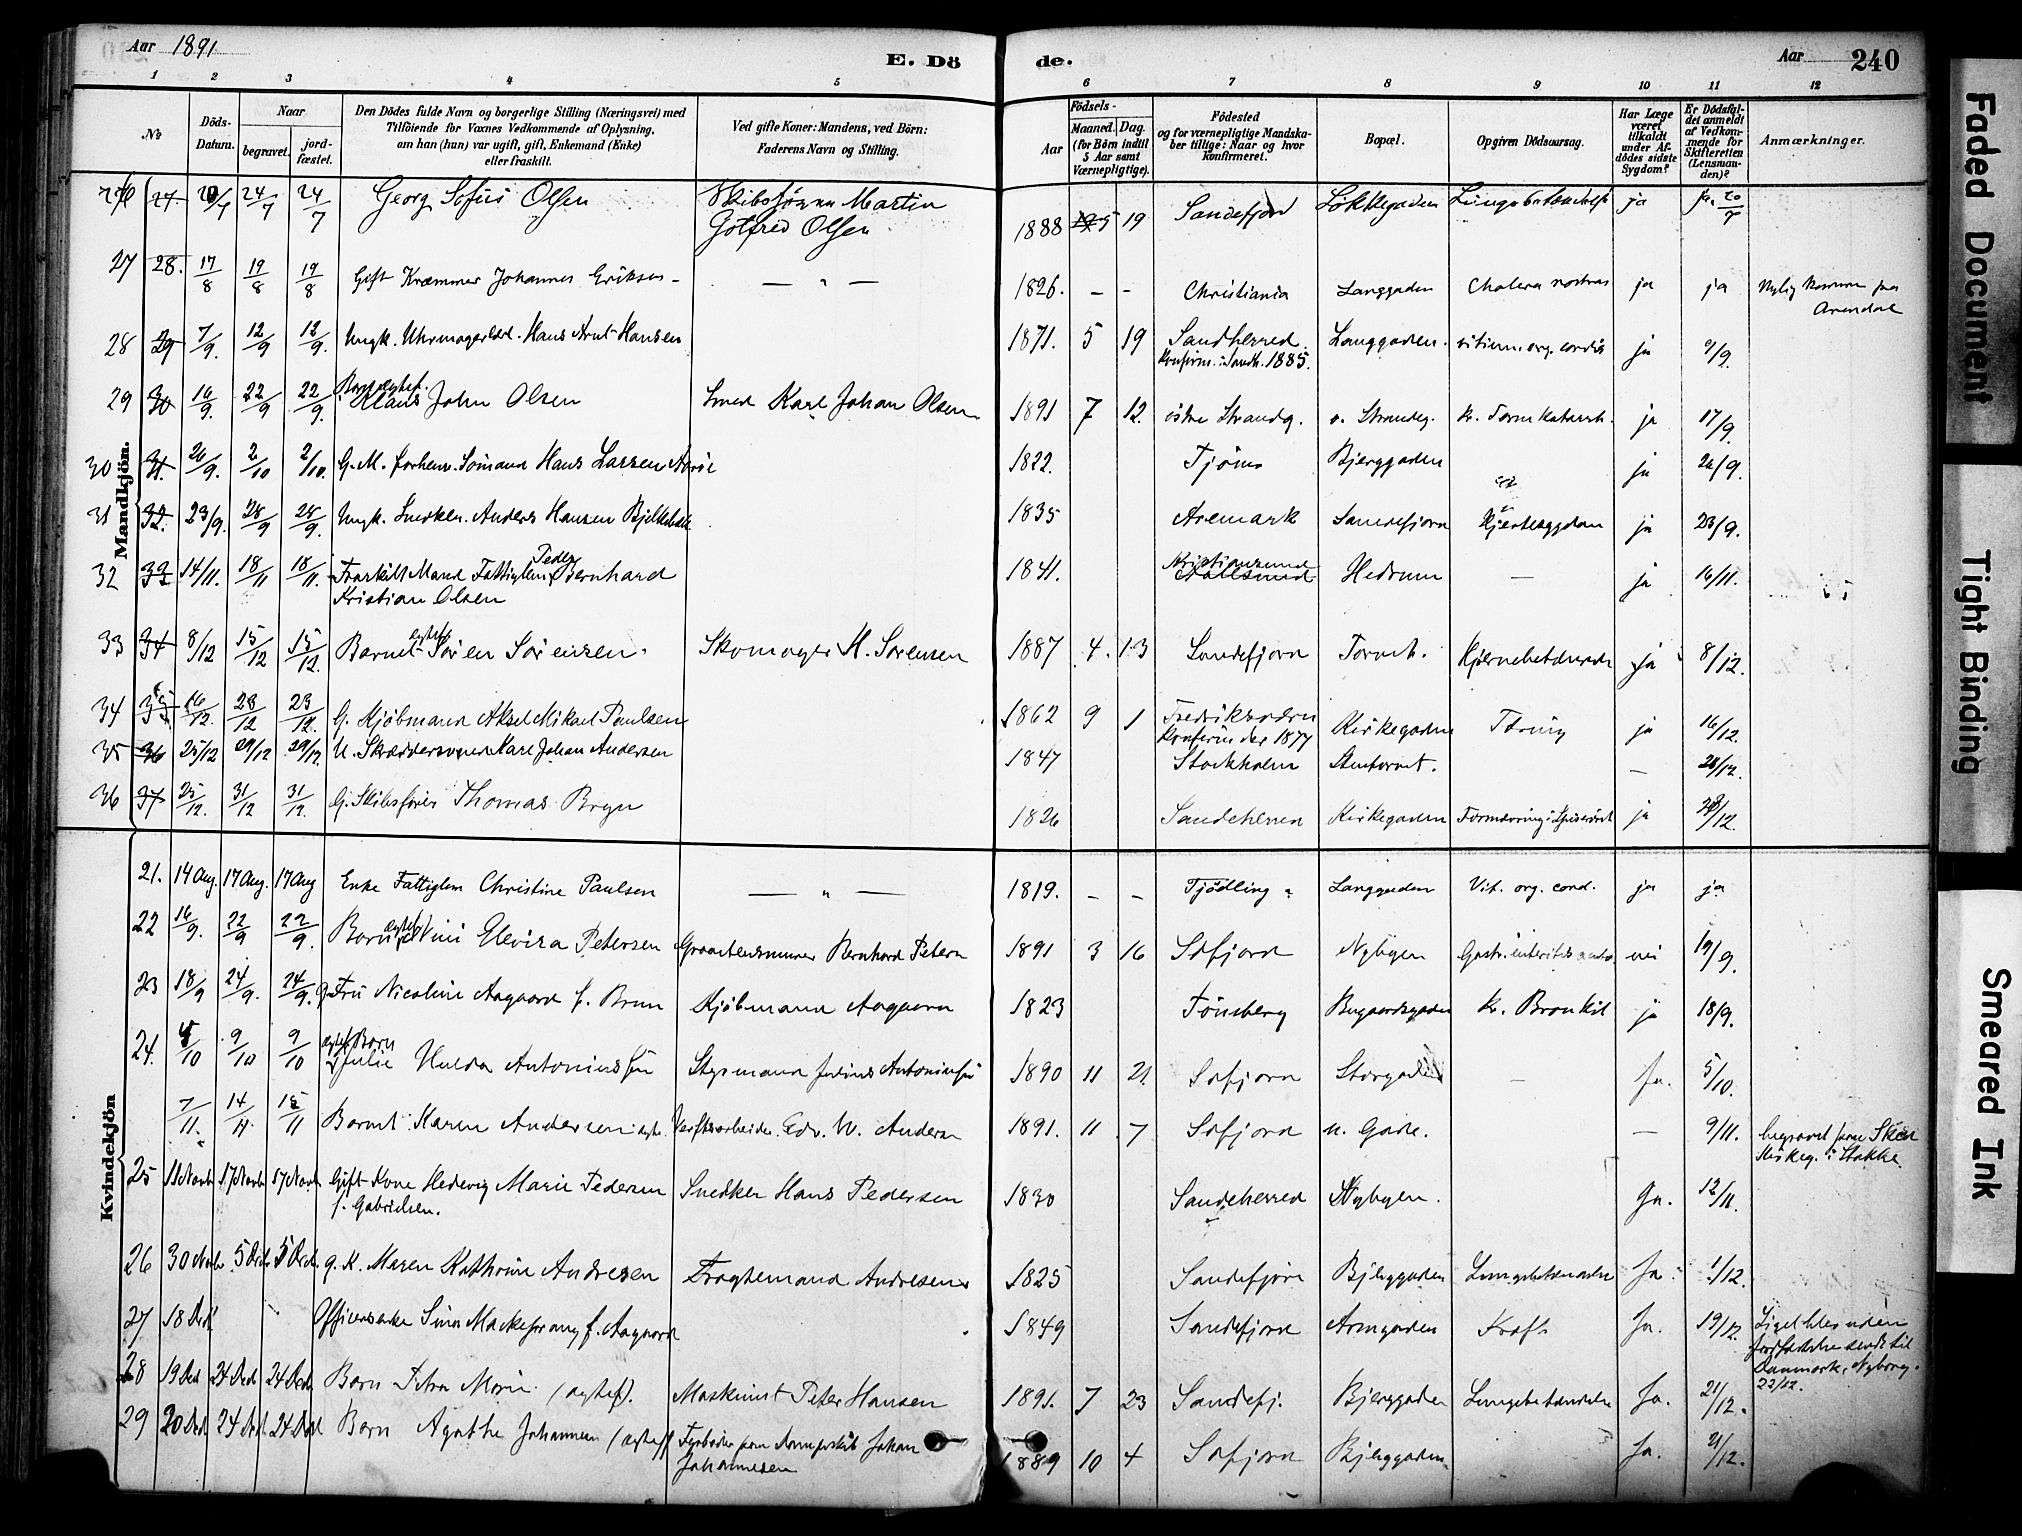 Aar 1891
E. Dö
de.
Aar 240
1 2 3 4 5 6 7 8 9 10 11 12
No
Döds-Datum.
Naar
begravet.
jord-fæstet.
Den Dödes fulde Navn og borgerlige Stilling (Næringsvei) med
Tilföiende for Voxnes Vedkommende af Oplysning,
om han (hun) var ugift, gift, Enkemand (Enke)
eller fraskilt.
Ved gifte Koner: Mandens, ved Börn:
Faderens Navn og Stilling.
Födsels-
Aar
Maaned. Dag.
(for Börn indtil
5 Aar samt
Værnepligtige).
Födested
og for værnepligtige Mandska-
ber tillige: Naar og hvor
konfirmeret.
Bopæl.
Opgiven Dödsaarsag.
Har Læge
været
tilkaldt
under Af-
dödes sidste
Sygdom?
Er Dödsfal-
det anmeldt
af Vedkom-
mende for
Skifteretten
(Lensman-
den)?
Anmærkninger.
Mandkjön.
27. 24/7 24/7 Georg Sofus Olsen Skibsfører Martin 1888 5 19 Sandefjord Løkkegaden ja ja. 20/7
Gotfred Olsen
27 28. 17/8 19/8 19/8 Gift Kræmmer Johannes Eriksen - — " — 1826. - - Christiania Langgaden Cholera nostras ja ja Nylig kommen fra
Arendal
28 29 7/9. 12/9 12/9. Ungk. Uhrmagerlærl. Hans Arnt Hansen 1871. 5 19 Sandherred Langgaden. vitium org. cordis ja 9/9.
Konfirm. i Sandh. 1885.
29 30 16/9. 22/9 22/9. Barn ægtef. Klaus John Olsen Smed Karl Johan Olsen 1891 7 12. østre Strandg. ø. Strandg. kr. Tarmkatarrh. ja 17/9.
30 31. 26/9. 2/10 2/10. G. M. forhenv. Sømand Hans Larsen Aarø 1822. Tjømø Bjerggaden ja 26/9.
31 32. 23/9. 28/9 28/9. Ungk. Snedker. Anders Hansen Bjelkebæk 1835 Aremark Sandefjord Hjertesygdom ja 23/9.
32 33 14/11. 18/11 18/11. Fraskilt Mand Fattiglem Peder Bernhard 1841. Kristianssund Hedrum — ja 16/11.
Kristian Olsen
33 34 8/12 15/12 15/12. Barnet ægtef. Søren Sørensen. Skomager M. Sørensen 1887 4. 13 Sandefjord Torvet. Hjernebetændelse ja 8/12.
34 35 16/12. 23/12 23/12. G. Kjøbmand Aksel Mikael Paulsen 1862 9 1 Fredriksværn Kirkegaden Tæring ja 16/12.
Konfirm. der 1877
35 36 25/12 29/12 29/12. U. Skræddersvend Karl Johan Andersen 1847 Stockholm — 28/12.
36 37 25/12. 31/12 31/12. G. Skibsfører Thomas Bryn 1826 Sandeherred Kirkegaden Forsnævring i Spiserøret ja 28/12.
Kvindekjön
21. 14 Aug. 17 Aug. 17 Aug Enke Fattiglem Christine Paulsen — " — 1819. - - Tjødling Langgaden Vit. org. cord. ja ja
22 16/9. 22/9 22/9. Barn ægtef. Nini Elevira Petersen Bernhard Petersen 1891 3 16 Sdfjord Nybyen nei 19/9.
23 18/9 24/9. 24/9. G. Fru Nicoline Aagaard f. Brun Kjøbmand Aagaard 1823 Tønsberg Bugaardsgaden kr. Bronkit ja 18/9.
24. 4/10 9/10 9/10 ægtef. Barn Julie Hulda Antoniussen Styrmand Julius Antoniussen 1890 11 21. Sdfjord Storgaden — Ja. 5/10.
7/11. 14/11 15/11 Barnet Karen Andersen ægte. Værftsarbeider Edv. W. Andersen 1891. 11 7 Sdfjord n. Gade. — 9/11. begravet paa Skee
Kirkeg. i Stokke.
25 11 Novb 17 Novb 17 Novb Gift Kone Hedevig Marie Pedersen Snedker Hans Pedersen 1830 Sandeherred Nybyen. Ja. 12/11.
f. Gabrielsen.
26 30 Novb. 5 Decb 5 Decb. g. K. Maren Kathrine Andresen Fragtemand Andresen 1825 Sandefjord Bjerggaden Lungebetændelse Ja. 1/12.
27 18 Decb Officersenke Sina Mackeprang f. Aagaard 1849 Sandefjord Kræft Ja. 19/12. Liget blev uden
Jordfæstelse sendt til
Danmark, Nyborg.
22/12.
28 19 Decb 24 Decb 24 Decb. Barn Petra Marie (ægtef.). Maskinist Peter Hansen 1891. 7 23 Sandefj. Bjerggaden Lungebetændelse Ja. 21/12.
29 20 Decb. 24 Decb. 24 Decb Barn Agathe Johannesen (ægtef Fyrbøder paa Dampskib Johan 1889 10 4 Sdfjord Bjerggaden Ja. 21/12.
Johannesen
Faded Document
Tight Binding
Smeared Ink